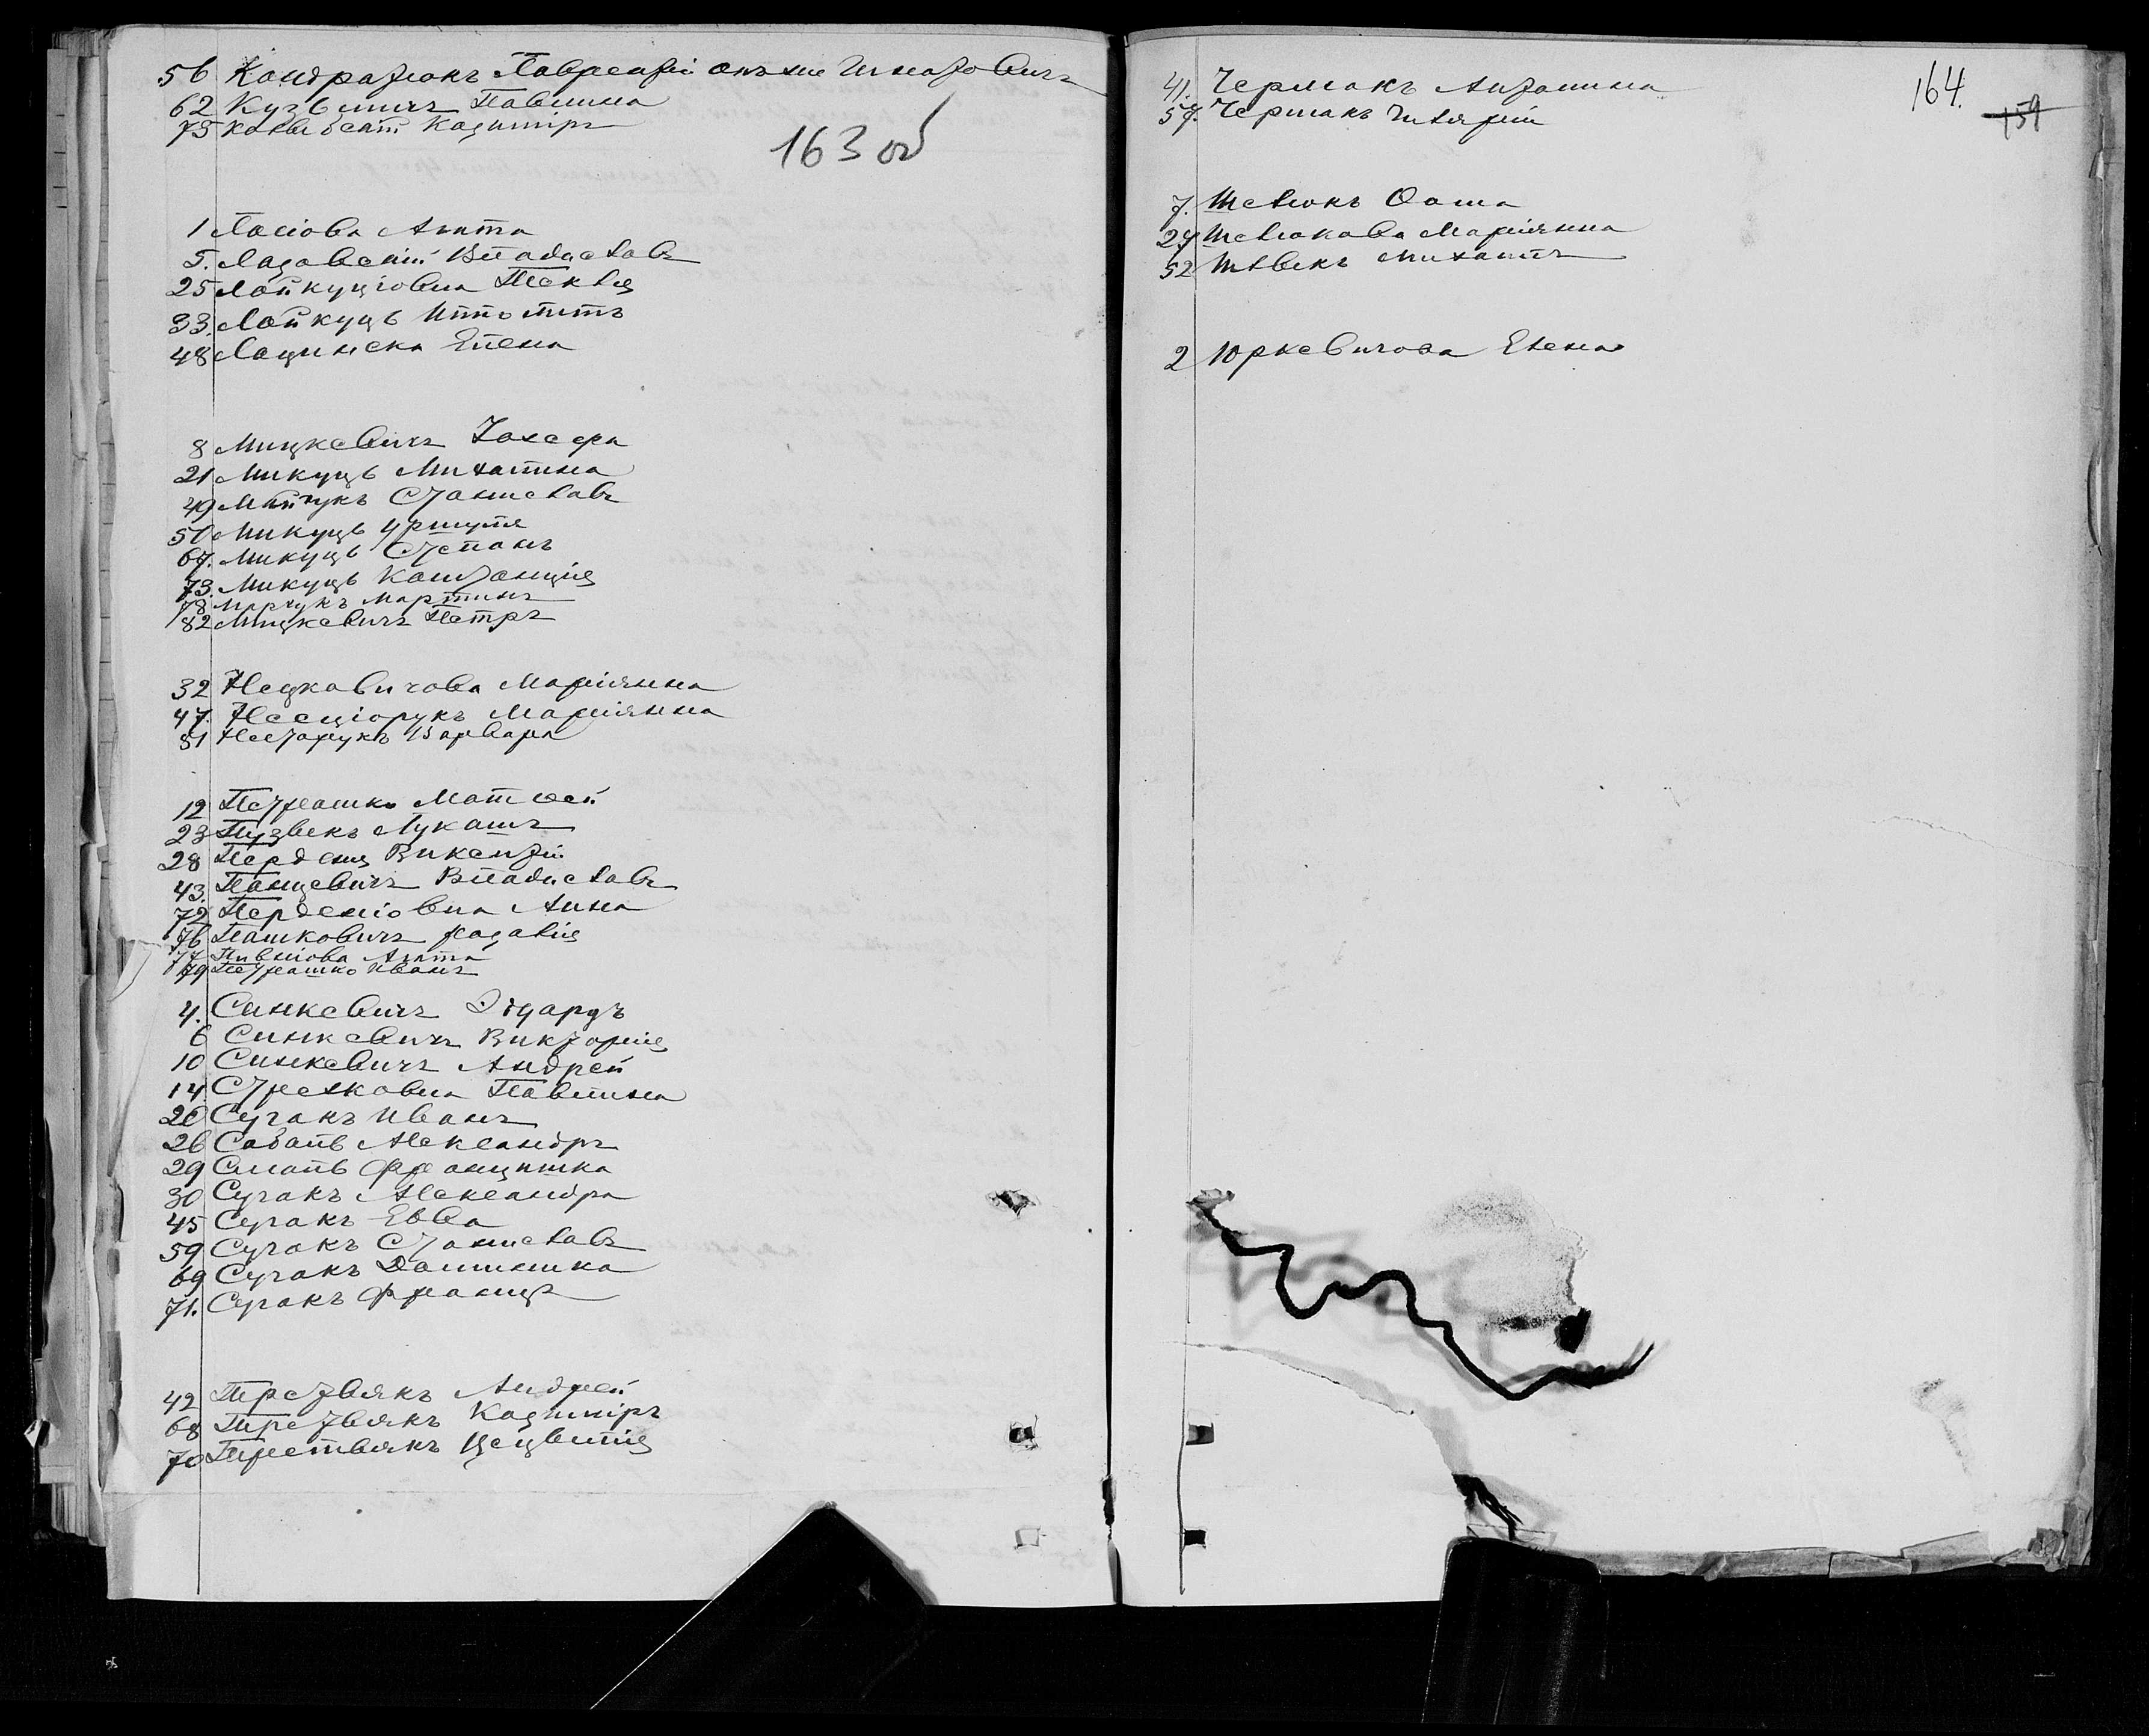 56 Кондратюкъ Лаврентій онъ же Игнатовичъ
62 Кузьмичъ Павлина
75 Казимiръ
163 об
1 Агата
5. Лазовскій Владиславъ
25 Лойкуцiовна Текля
33. Лойкуць Ипполитъ
48 Лацинска Елена
8 Мицкевичъ Іозефа
21 Микуць Михалина
49 Станиславъ
50 Микуць Уршуля
67. Микуць Степанъ
73. Микуць Констанція
78 Марчукъ Мартинъ
82 Мицкевичъ Петръ
32 Маріянна
47. Несціорукъ Маріянна
81 Нестарукъ Варвара
12 Петрашко Матвей
23 Лукашъ
28 Пердень Викентій
43. Панцевичъ Владиславъ
72 Перденіовна Анна
76 Пашковичъ Розалія
77 Пивніова Агата
79 Петрашко Иванъ
4. Синкевичъ Эдуардъ
6 Синкевичъ Викторія
10 Синкевичъ Андрей
14 Стрелковна Павлина
20 Сугакъ Иванъ
26 Собаль Александръ
29 Смаль Францишка
30 Сугакъ Александра
45 Сугакъ Евва
59 Сугакъ Станиславъ
69 Сугакъ Доминика
71. Сугакъ Францъ
42 Третьякъ Андрей
68 Третьякъ Казимiръ
70 Третьякъ Цецилія
164.
159
41. Чермакъ Антонина
57. Чермакъ Гилярій
7. Шевлюкъ Фома
24 Маріянна
52 Михаилъ
2 Юркевичова Елена